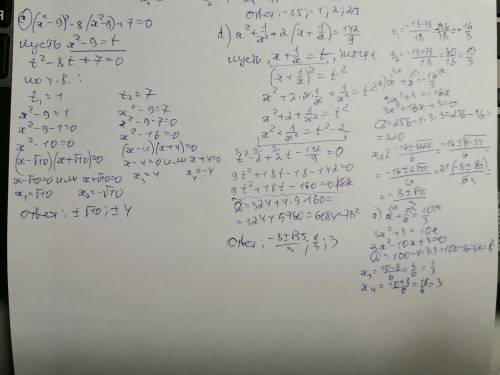 ответ: -2,5, -1, 1, 2,5
(x²-9)²-8(x²-9)+7=0
пусть x²-9=t
t²-8t+7=0
по т.В.:
t₁=1 t₂=7
x²-9=1 x²-9=7
x²-9-1=0 x²-9-7=0
x²-10=0 x²-16=0
(x-√10)(x+√10)=0 (x-4)(x+4)=0
x-√10=0 или x+√10=0 x-4=0 или x+4=0
x₁=√10 x₂=-√10 x₃=4 x₄=-4
ответ: ±√10; ±4
d) x²+1/x²+2(x+1/x)=142/9
пусть x+1/x=t, тогда
(x+1/x)²=t²
x²+2·x·1/x+1/x²=t²
x²+2+1/x²=t²
x²+1/x²=t²-2
t²-2+2t-142/9=0
9t²+18t-18-142=0
9t²+18t-160=0
D=324+4·9·160=
=324+5760=6084=78²
ответ: (-8±√55)/3; 1/3; 3
t₁=(-18-78)/18=-96/18=-16/3
t₂=(-18+78)/18=60/18=10/3
x+1/x=-16/3
3x²+3=-16x
3x²+16x+3=0
D=256-4·3·3=256-36=
=220
=(-16±2√55)/6
=(-8±√55)/3
x+1/x=10/3
3x²+3=10x
3x²-10x+3=0
D=100-4·3·3=100-36=64=8²
x₃=(10-8)/6=2/6=1/3
x₄=(10+8)/6=18/6=3